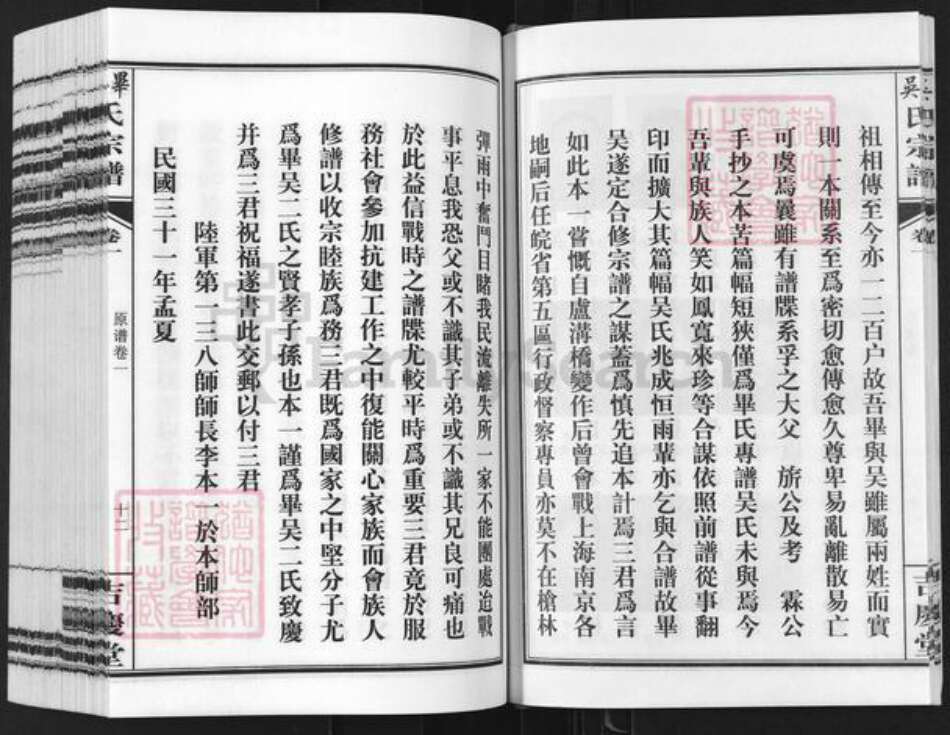 吳氏宗譜
卷一
吉慶堂
祖相傳至今亦一二百户故吾畢與吴雖屬兩姓而實
則一本關系至爲密切愈傳愈久尊卑易亂離散易亡
可虞焉曩雖有譜牒系孚之大父 旂公及考 霖公
手抄之本苦篇幅短狹僅爲畢氏專譜吴氏未與焉今
吾輩與族人笑如鳳寬來珍等合謀依照前譜從事翻
印而擴大其篇幅吴氏兆成恒雨輩亦乞與合譜故畢
吴遂定合修宗譜之謀蓋爲慎先追本計焉三君爲言
如此本一嘗慨自盧溝橋變作后曾會戰上海南京各
地嗣后任皖省第五區行政督察專員亦莫不在槍林
彈雨中奮鬥目睹我民流離失所一家不能團處迨戰
事平息我恐父或不識其子弟或不識其兄良可痛也
於此益信戰時之譜牒尤較平時爲重要三君竟於服
務社會參加抗建工作之中復能關心家族而會族人
修譜以收宗睦族爲務三君既爲國家之中堅分子尤
爲畢吴二氏之賢孝子孫也本一謹爲畢吴二氏致慶
并爲三君祝福遂書此交郵以付三君
陸軍第一三八師師長李本一於本師部
民國三十一年孟夏
畢氏宗譜
卷一
原谱卷一
十二
吉慶堂
FamilySearch